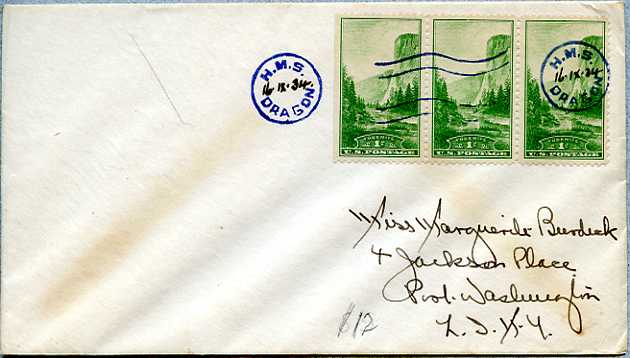 H.M.S.
16·IX·34·
DRAGON.
H.M.S.
16·IX·34
DRAGON.
YOSEMITE
1¢
U.S. POSTAGE
YOSEMITE
1¢
U.S. POSTAGE
YOSEMITE
1¢
U.S. POSTAGE
Miss Marguerite Burdick
4 Jackson Place
Port Washington
L. I. N. Y.
$12